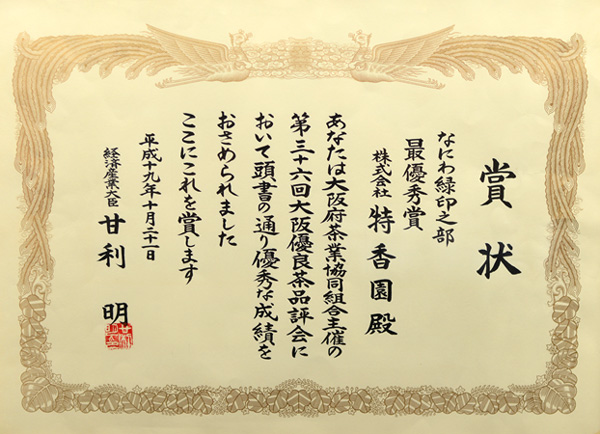 賞状
なにわ緑印之部
最優秀賞
株式会社 特香園殿
あなたは大阪府茶業協同組合主催の
第三十六回大阪優良茶品評会に
おいて頭書の通り優秀な成績を
おさめられました
ここにこれを賞します
平成十九年十月二十一日
経済産業大臣 甘利 明